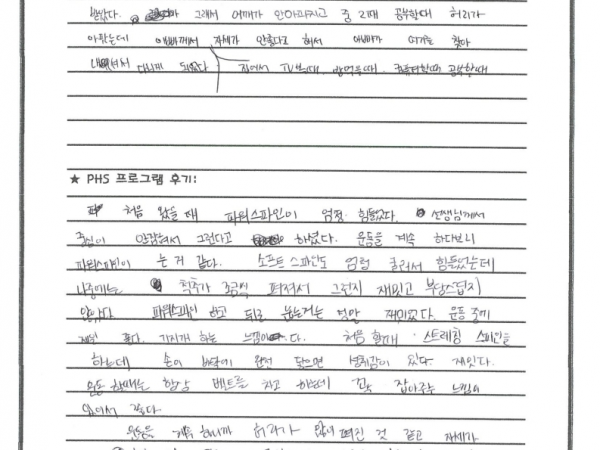 받았다. 그래서 어깨가 안아파지고 중 2때 공부할때 허리가
아팠는데 아빠께서 자세가 안좋다고 해서 여기를 찾아
다니게 되었다 집에서 TV볼때, 밥먹을때, 컴퓨터할때 공부할때
★ PHS 프로그램 후기:
처음 왔을 때 파워스파인이 엄청 힘들었다. 선생님께서
중심이 안잡혀서 그런다고 하셨다. 운동을 계속 하다보니
파워스파인이 는 거 같다. 소프트 스파인도 엄청 굴러서 힘들었는데
나중에는 척추가 조금씩 펴져서 그런지 재밌고 부담스럽지
않았다. 파워스파인 하고 뒤로 눕는거는 정말 재미있었다. 운동 중에
제일 좋다. 기지개 하는 느낌이다. 처음 할때 스트레칭 스파인을
하는데 손이 바닥에 완전 닿으면 성취감이 있다. 재밌다.
운동 할때는 항상 벨트를 차고 하는데 꼭 잡아주는 느낌이
있어서 좋다.
운동을 계속 하니까 허리가 많이 펴진 것 같고 자세가